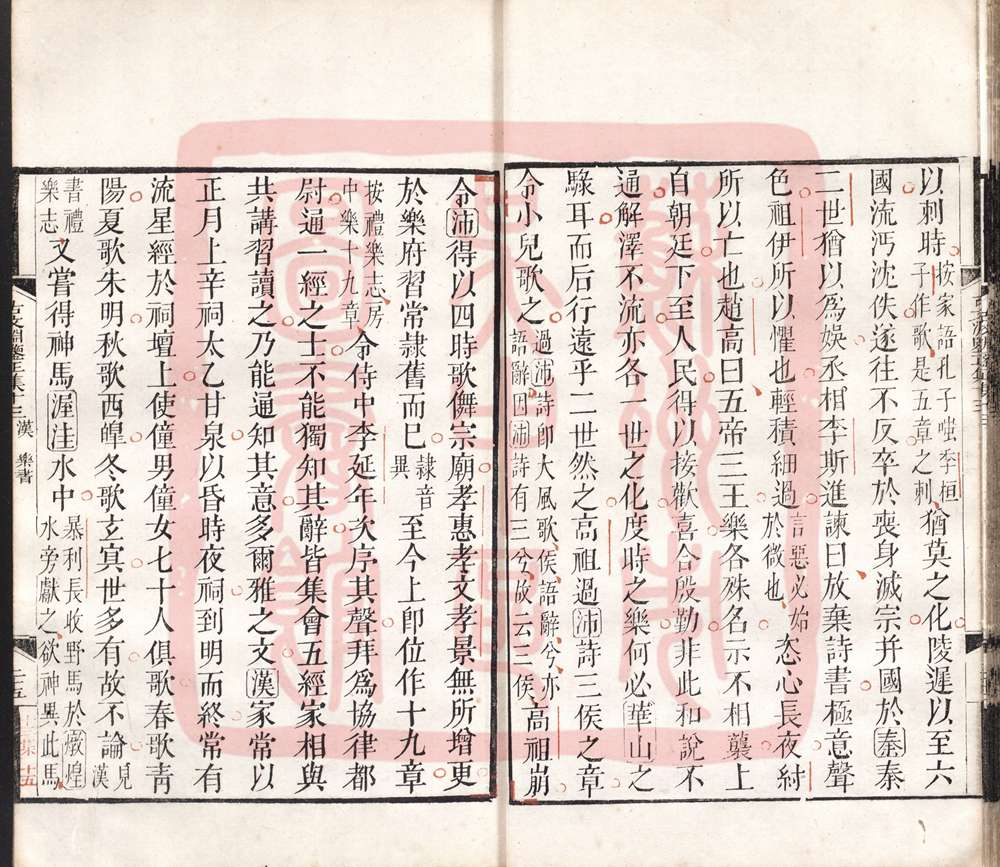 以刺時按家語孔子嗤季桓子作歌是五章之刺猶莫之化陵遲以至六
國流沔沈佚遂往不反卒於喪身滅宗并國於秦秦
二世猶以爲娛丞相李斯進諫曰放棄詩書極意聲
色祖伊所以懼也輕積細過言惡必始於微也恣心長夜紂
所以亡也趙高曰五帝三王樂各殊名示不相襲上
自朝廷下至人民得以接歡喜合殷勤非此和說不
通解澤不流亦各一世之化度時之樂何必華山之
騄耳而后行遠乎二世然之高祖過沛詩三侯之章
令小兒歌之過沛詩卽大風歌侯語辭兮亦語辭因沛詩有三兮故云三侯高祖崩
令沛得以四時歌儛宗廟孝惠孝文孝景無所增更
於樂府習常隸舊而巳隸音異至今上卽位作十九章
按禮樂志房中樂十九章令侍中李延年次序其聲拜爲協律都
尉通一經之士不能獨知其辭皆集會五經家相與
共講習讀之乃能通知其意多爾雅之文漢家常以
正月上辛祠太乙甘泉以昏時夜祠到明而終常有
流星經於祠壇上使僮男僮女七十人俱歌春歌靑
陽夏歌朱明秋歌西皥冬歌玄冥世多有故不論見漢
書禮樂志又嘗得神馬渥洼水中暴利長收野馬於燉煌水旁獻之欲神異此馬
漢 樂書